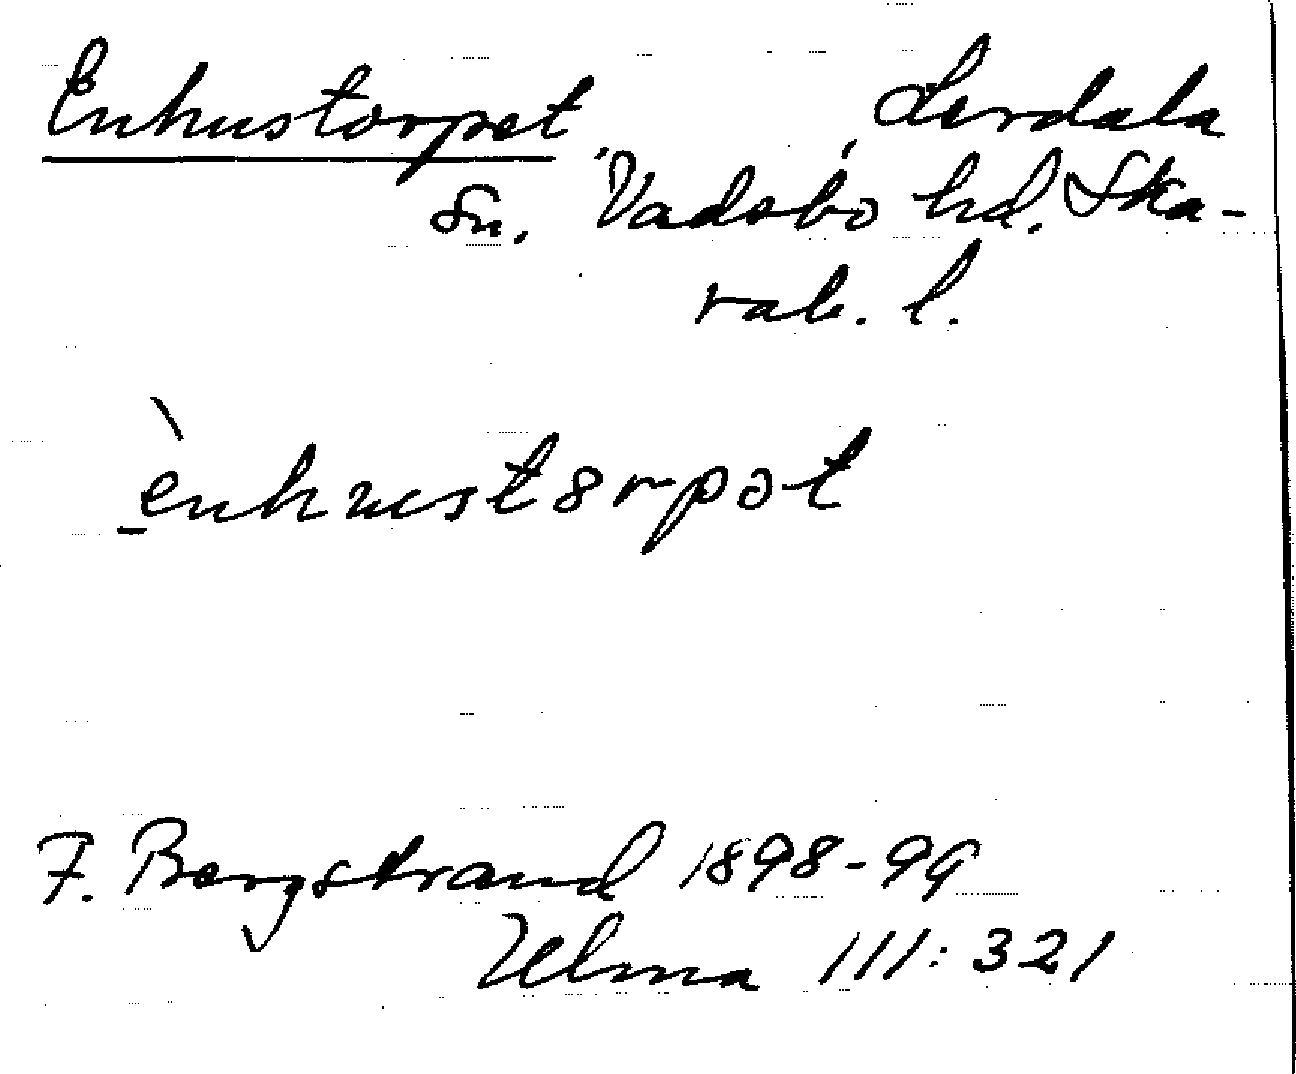 Enhustorpet Lerdala
Sn. Vadsbo hd. Ska-
rab. l.
ènhustorpət
F. Bergstrand 1898-99
Ulma 111:321